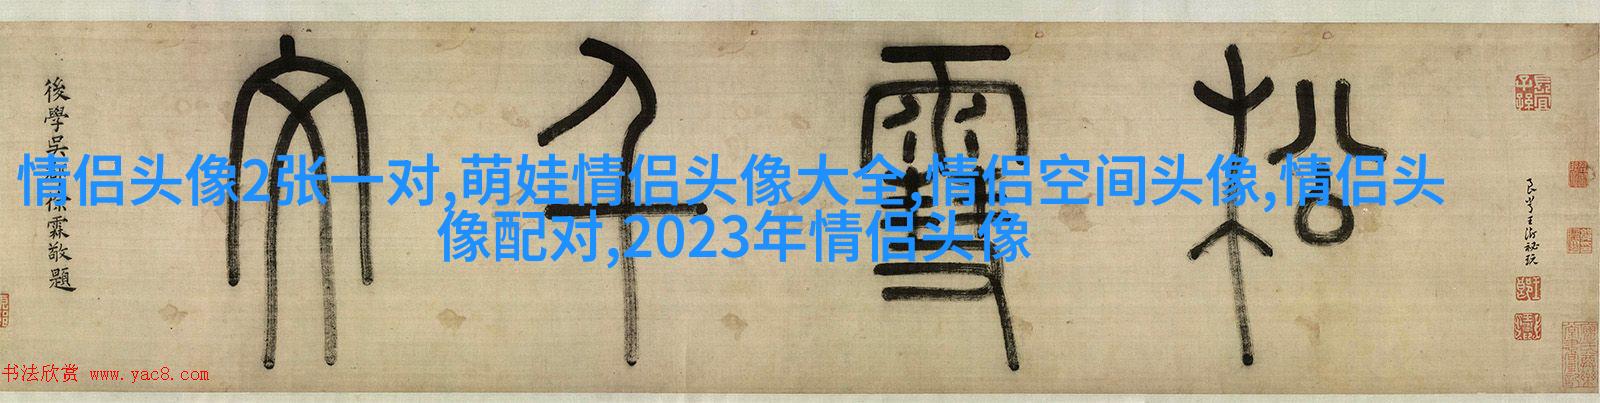 情侣头像2张一对,萌娃情侣头像大全,情侣空间头像,情侣头
像配对,2023年情侣头像
松雪千文
後學吳徐霖敬題
良常王澍秘玩
長宜子孫
书法欣赏 www.yac8.com